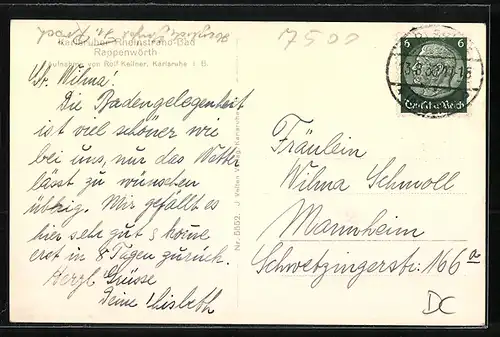 Karlsruher Rheinstrand-Bad
Rappenwörth
Aufnahme von Rolf Kellner, Karlsruhe i. B.
7500
Lb. Wilma!
Die Badengelegenheit
ist viel schöner wie
bei uns, nur das Wetter
lässt zu wünschen
übrig. Mir gefällt es
hier sehr gut & kome
erst in 8 Tagen zurück.
Herzl Grüsse
Deine Lisbeth
Nr. 5552.
6 6
Deutsches Reich
Fräulein
Wilma Schmoll
Mannheim
Schwetzingerstr. 166a
DC